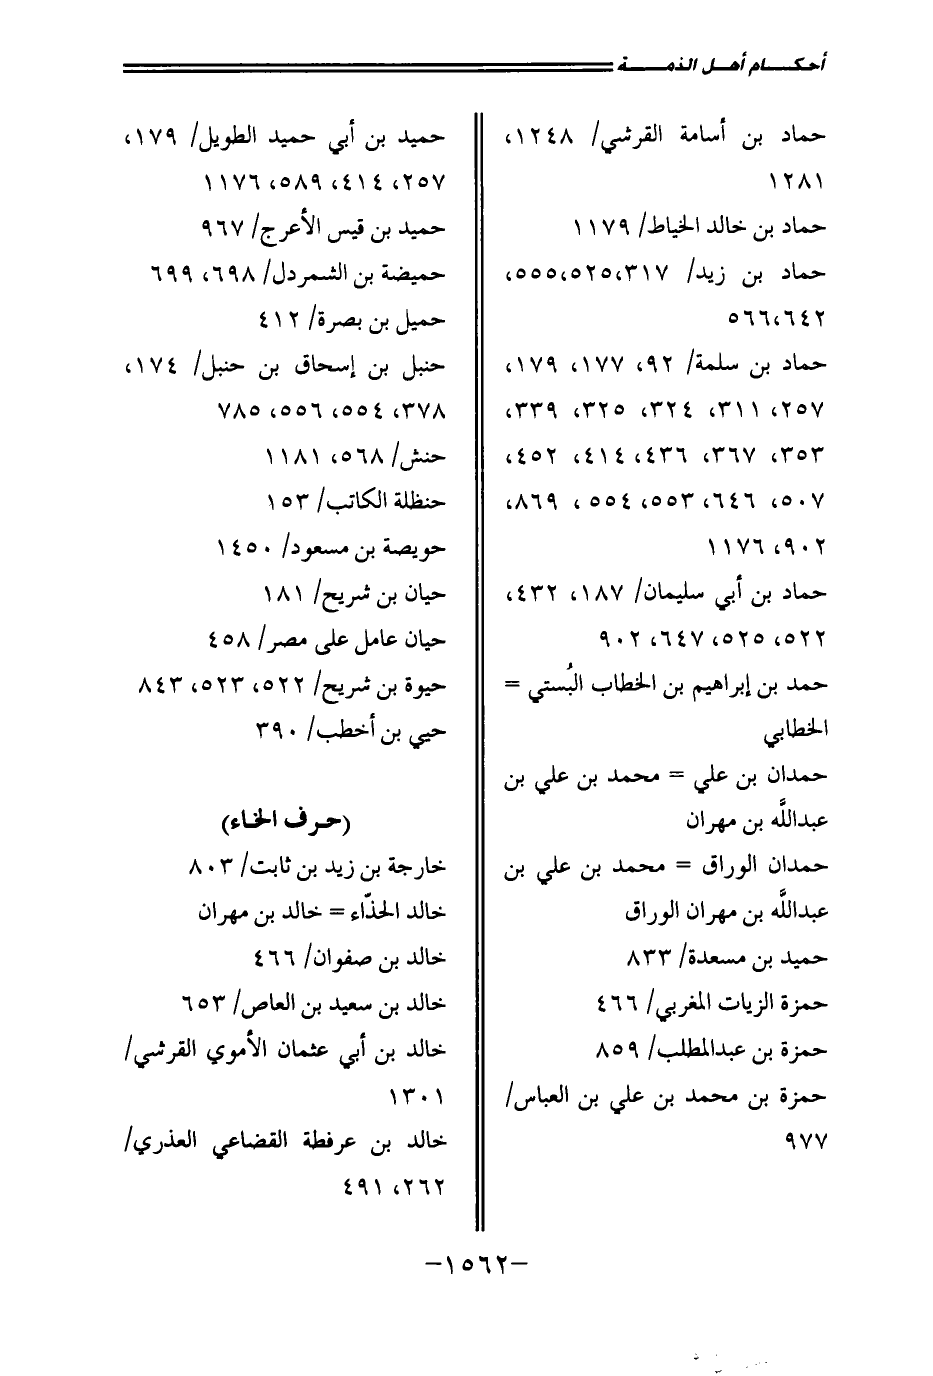 أحكـــام أهــل الذمـــة
حماد بن أسامة القرشي/ ١٢٤٨،
١٢٨١
حماد بن خالد الخياط/ ١١٧٩
حماد بن زيد/ ٣١٧،٥٢٥،٥٥٥،
٥٦٦،٦٤٢
حماد بن سلمة/ ٩٢، ١٧٧، ١٧٩،
٢٥٧، ٣١١، ٣٢٤، ٣٢٥، ٣٣٩،
٣٥٣، ٣٦٧، ٤٣٦، ٤١٤، ٤٥٢،
٥٠٧، ٦٤٦، ٥٥٣، ٥٥٤ ، ٨٦٩،
٩٠٢، ١١٧٦
حماد بن أبي سليمان/ ١٨٧، ٤٣٢،
٥٢٢، ٥٢٥، ٦٤٧، ٩٠٢
حمد بن إبراهيم بن الخطاب البُستي =
الخطابي
حمدان بن علي = محمد بن علي بن
عبداللَّه بن مهران
حمدان الوراق = محمد بن علي بن
عبداللَّه بن مهران الوراق
حميد بن مسعدة/ ٨٣٣
حمزة الزيات المغربي/ ٤٦٦
حمزة بن عبدالمطلب/ ٨٥٩
حمزة بن محمد بن علي بن العباس/
٩٧٧
حميد بن أبي حميد الطويل/ ١٧٩،
٢٥٧، ٤١٤، ٥٨٩، ١١٧٦
حميد بن قيس الأعرج/ ٩٦٧
حميضة بن الشمردل/ ٦٩٨، ٦٩٩
حميل بن بصرة/ ٤١٢
حنبل بن إسحاق بن حنبل/ ١٧٤،
٣٧٨، ٥٥٤، ٥٥٦، ٧٨٥
حنش/ ٥٦٨، ١١٨١
حنظلة الكاتب/ ١٥٣
حويصة بن مسعود/ ١٤٥٠
حيان بن شريح/ ١٨١
حيان عامل على مصر/ ٤٥٨
حيوة بن شريح/ ٥٢٢، ٥٢٣، ٨٤٣
حيي بن أخطب/ ٣٩٠
(حرف الخاء)
خارجة بن زيد بن ثابت/ ٨٠٣
خالد الحذّاء = خالد بن مهران
خالد بن صفوان/ ٤٦٦
خالد بن سعيد بن العاص/ ٦٥٣
خالد بن أبي عثمان الأموي القرشي/
١٣٠١
خالد بن عرفطة القضاعي العذري/
٢٦٢، ٤٩١
–١٥٦٢–